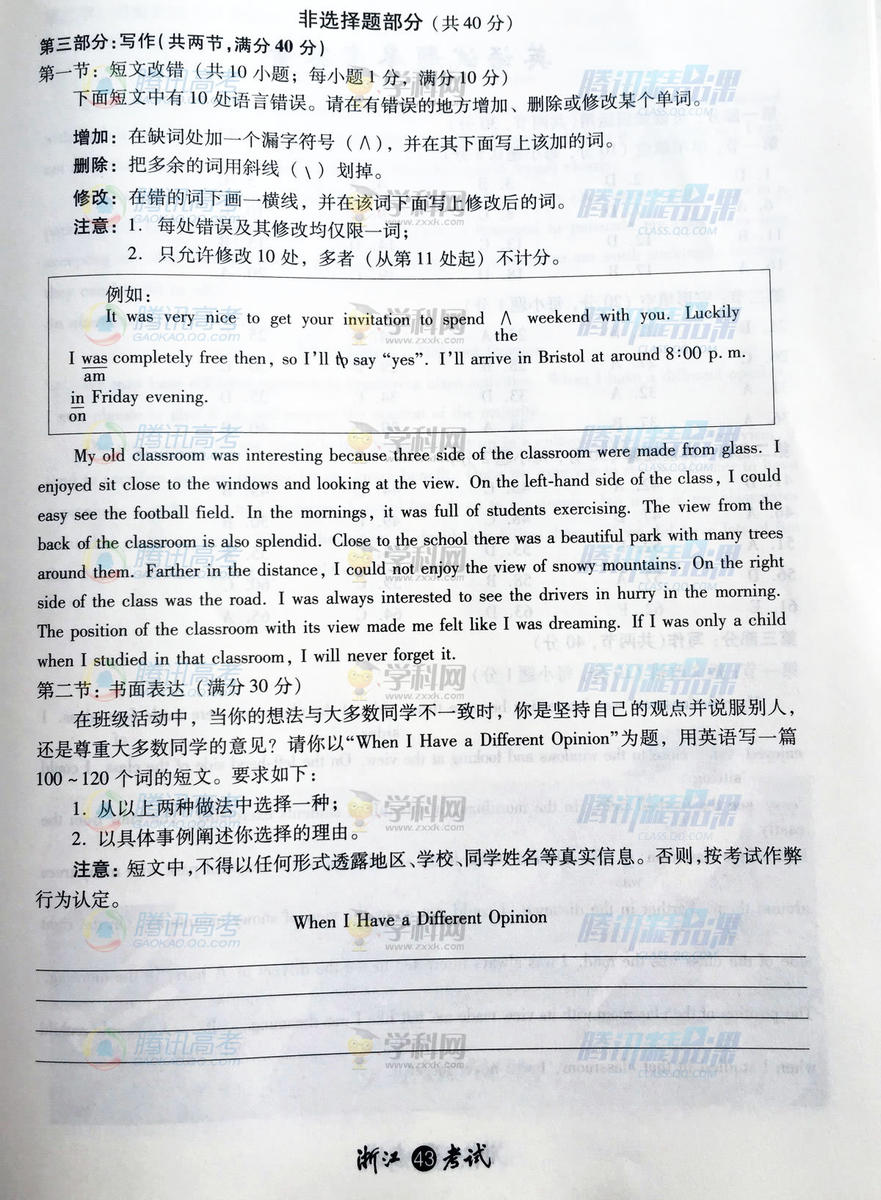 非选择题部分（共40分）
第三部分：写作（共两节，满分40分）
第一节：短文改错（共10小题；每小题1分，满分10分）
下面短文中有10处语言错误。请在有错误的地方增加、删除或修改某个单词。
增加：在缺词处加一个漏字符号（∧），并在其下面写上该加的词。
删除：把多余的词用斜线（\）划掉。
修改：在错的词下画一横线，并在该词下面写上修改后的词。
注意：1. 每处错误及其修改均仅限一词；
2. 只允许修改10处，多者（从第11处起）不计分。
例如：
It was very nice to get your invitation to spend ∧ weekend with you. Luckily
the
I was completely free then, so I'll to say “yes”. I'll arrive in Bristol at around 8:00 p.m.
am
in Friday evening.
on
My old classroom was interesting because three side of the classroom were made from glass. I
enjoyed sit close to the windows and looking at the view. On the left-hand side of the class, I could
easy see the football field. In the mornings, it was full of students exercising. The view from the
back of the classroom is also splendid. Close to the school there was a beautiful park with many trees
around them. Farther in the distance, I could not enjoy the view of snowy mountains. On the right
side of the class was the road. I was always interested to see the drivers in hurry in the morning.
The position of the classroom with its view made me felt like I was dreaming. If I was only a child
when I studied in that classroom, I will never forget it.
第二节：书面表达（满分30分）
在班级活动中，当你的想法与大多数同学不一致时，你是坚持自己的观点并说服别人，
还是尊重大多数同学的意见？请你以“When I Have a Different Opinion”为题，用英语写一篇
100~120个词的短文。要求如下：
1. 从以上两种做法中选择一种；
2. 以具体事例阐述你选择的理由。
注意：短文中，不得以任何形式透露地区、学校、同学姓名等真实信息。否则，按考试作弊
行为认定。
When I Have a Different Opinion
浙江 43 考试